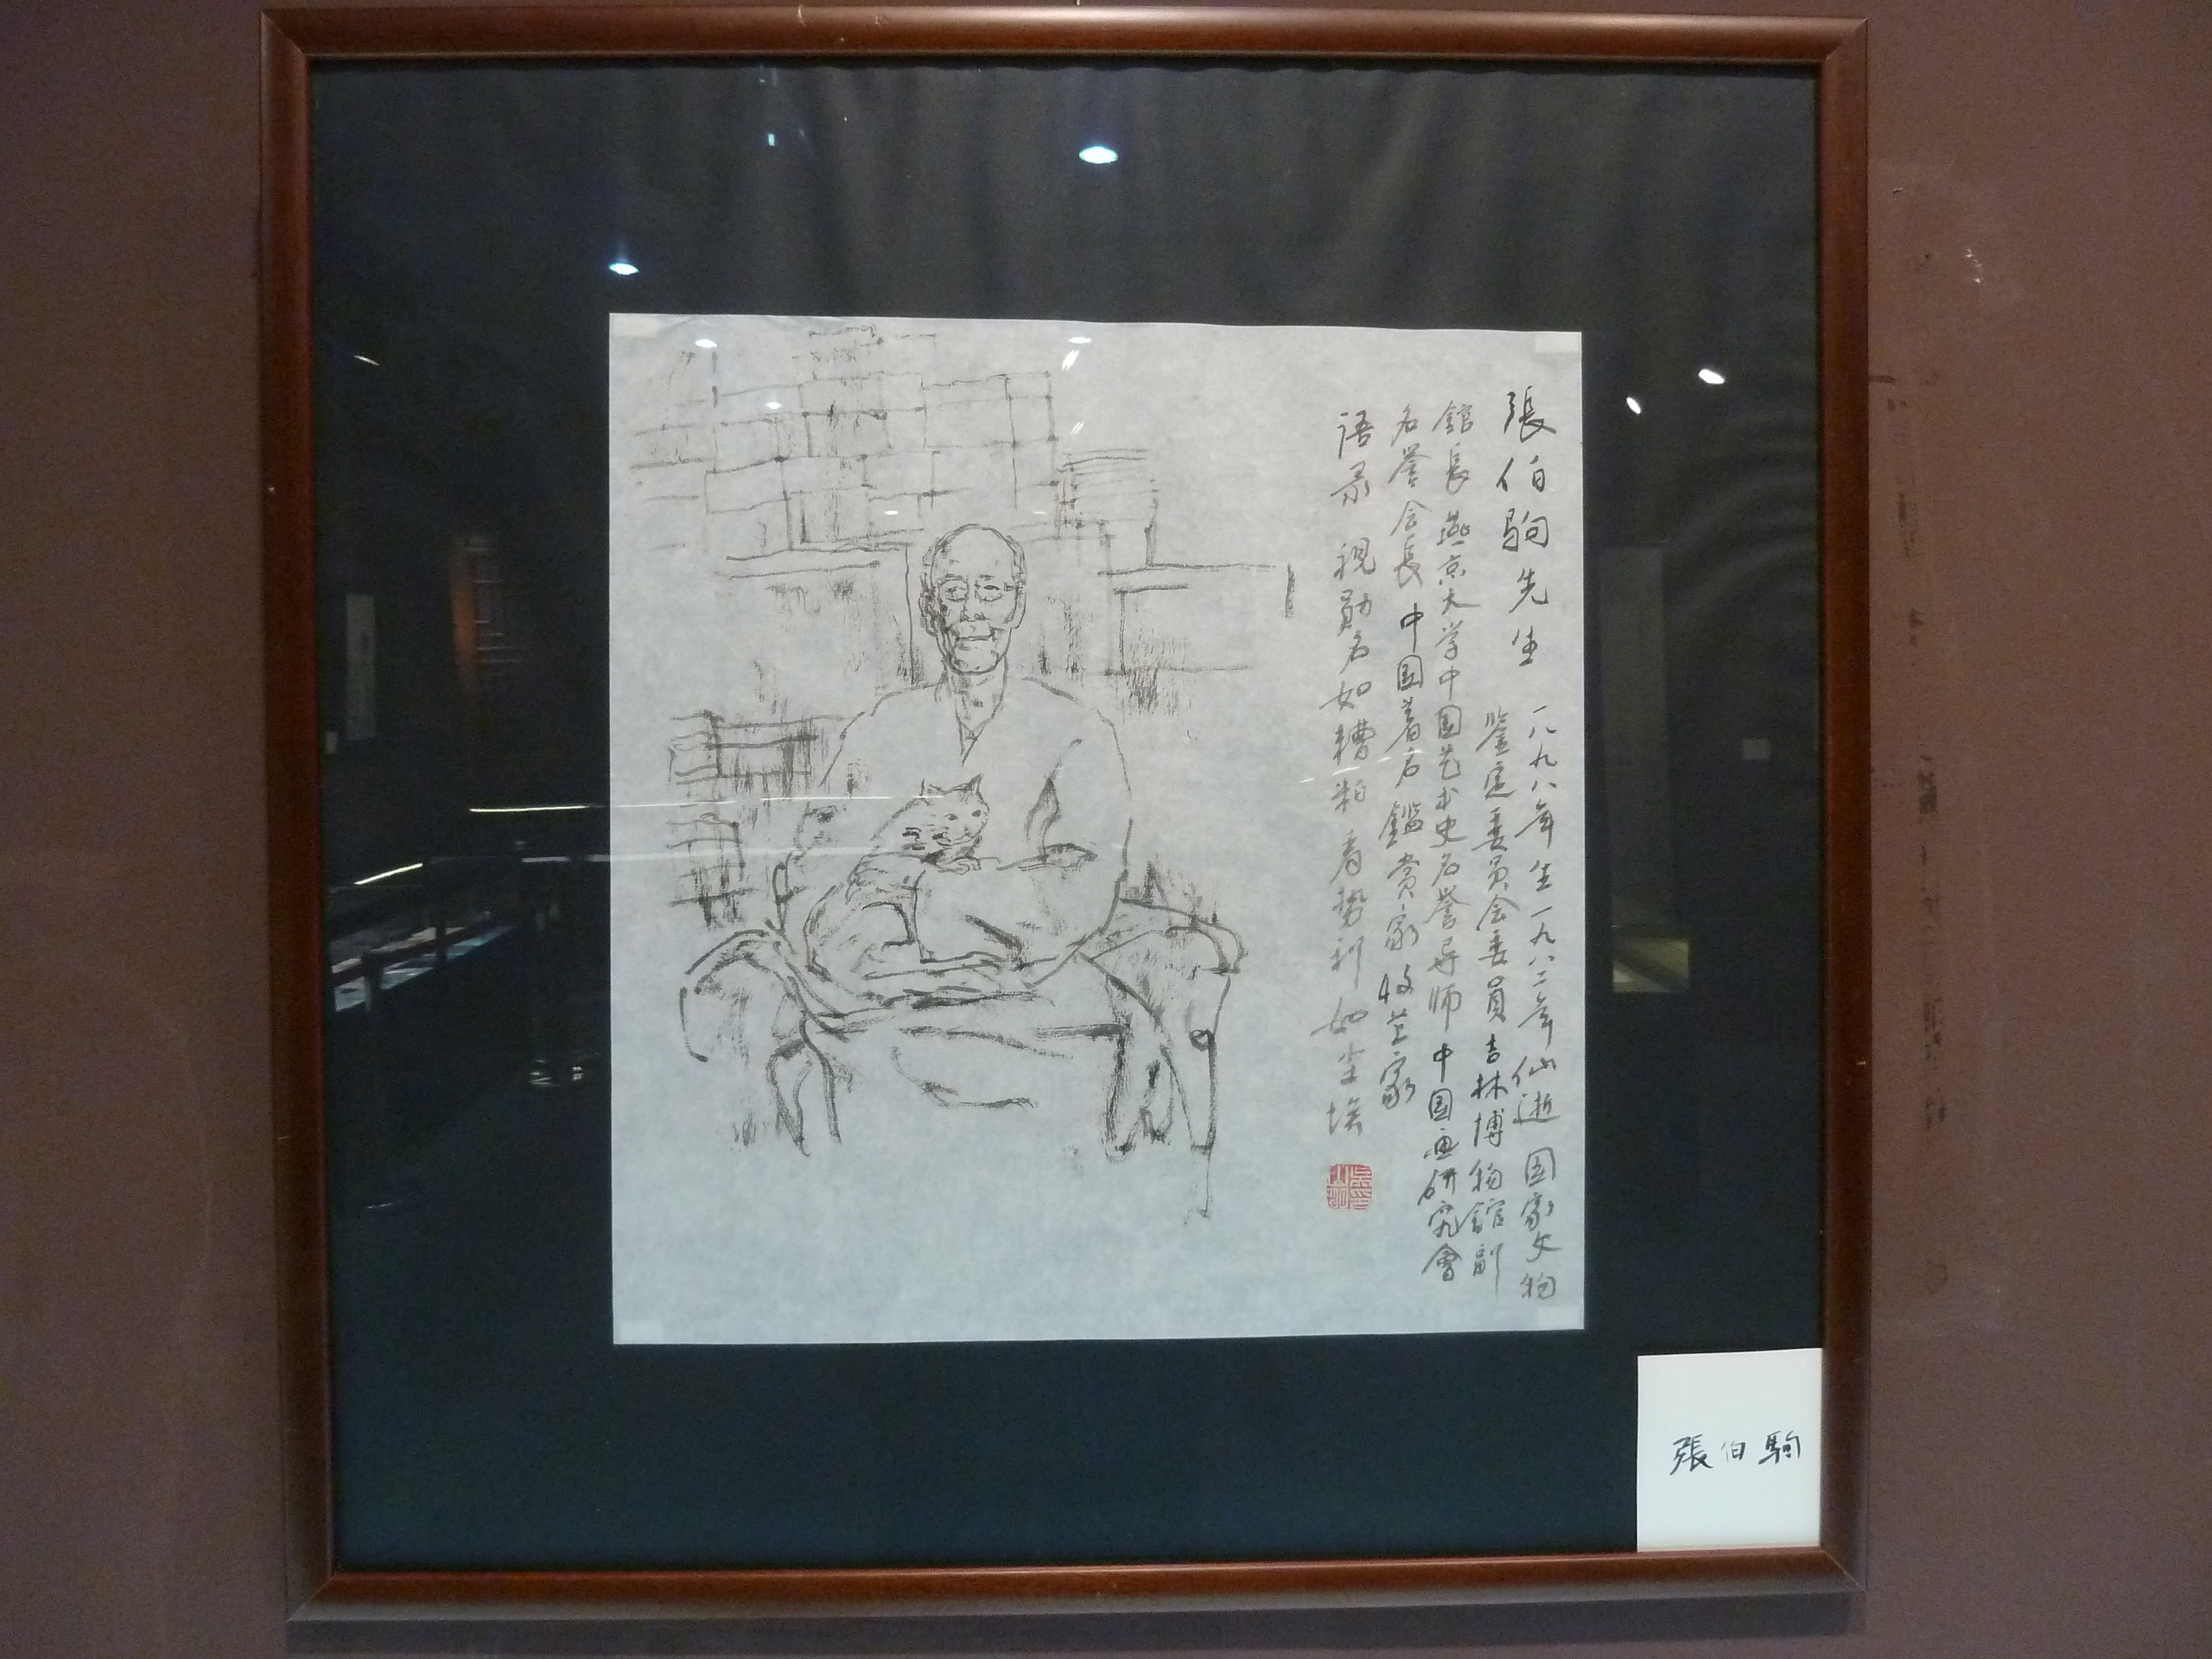 張伯駒先生 一八九八年生一九八二年仙逝 国家文物
鉴定委员会委員 吉林博物館副
館長 燕京大学中国艺术史名誉导师 中国画研究會
名誉会長 中国着名鑑赏家 收芷家
语录 視勋名如糟粕 看势利如尘埃
張伯駒